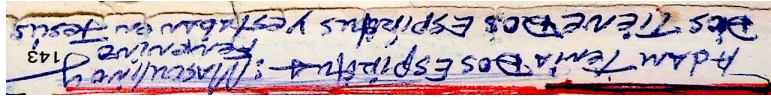 ADAM Tenia DOS ESPIRITUS: MASCULINO y
FEMENINO
143
DIOS TIENE DOS ESPIRITUS y estaban en Jesús